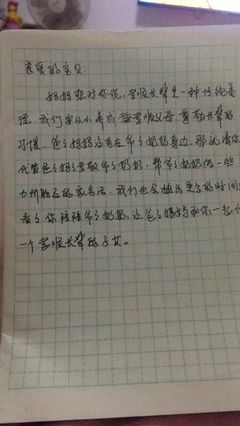 亲爱的宝贝:
妈妈想对你说,孝顺长辈是一种传统美
德。我们字从小养成孝敬父母,尊敬长辈的
习惯。爸爸妈妈没有在爷爷奶奶身边,那就请你
代替爸爸妈妈孝敬爷爷奶奶,帮爷爷奶奶做一些
力所能及的家务活。我们也会抽出更多的时间
看看你陪陪爷爷奶奶,让爸爸妈妈和你一起做
一个孝顺长辈的子女。